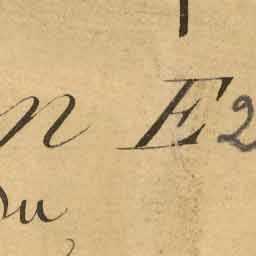 n E2
du